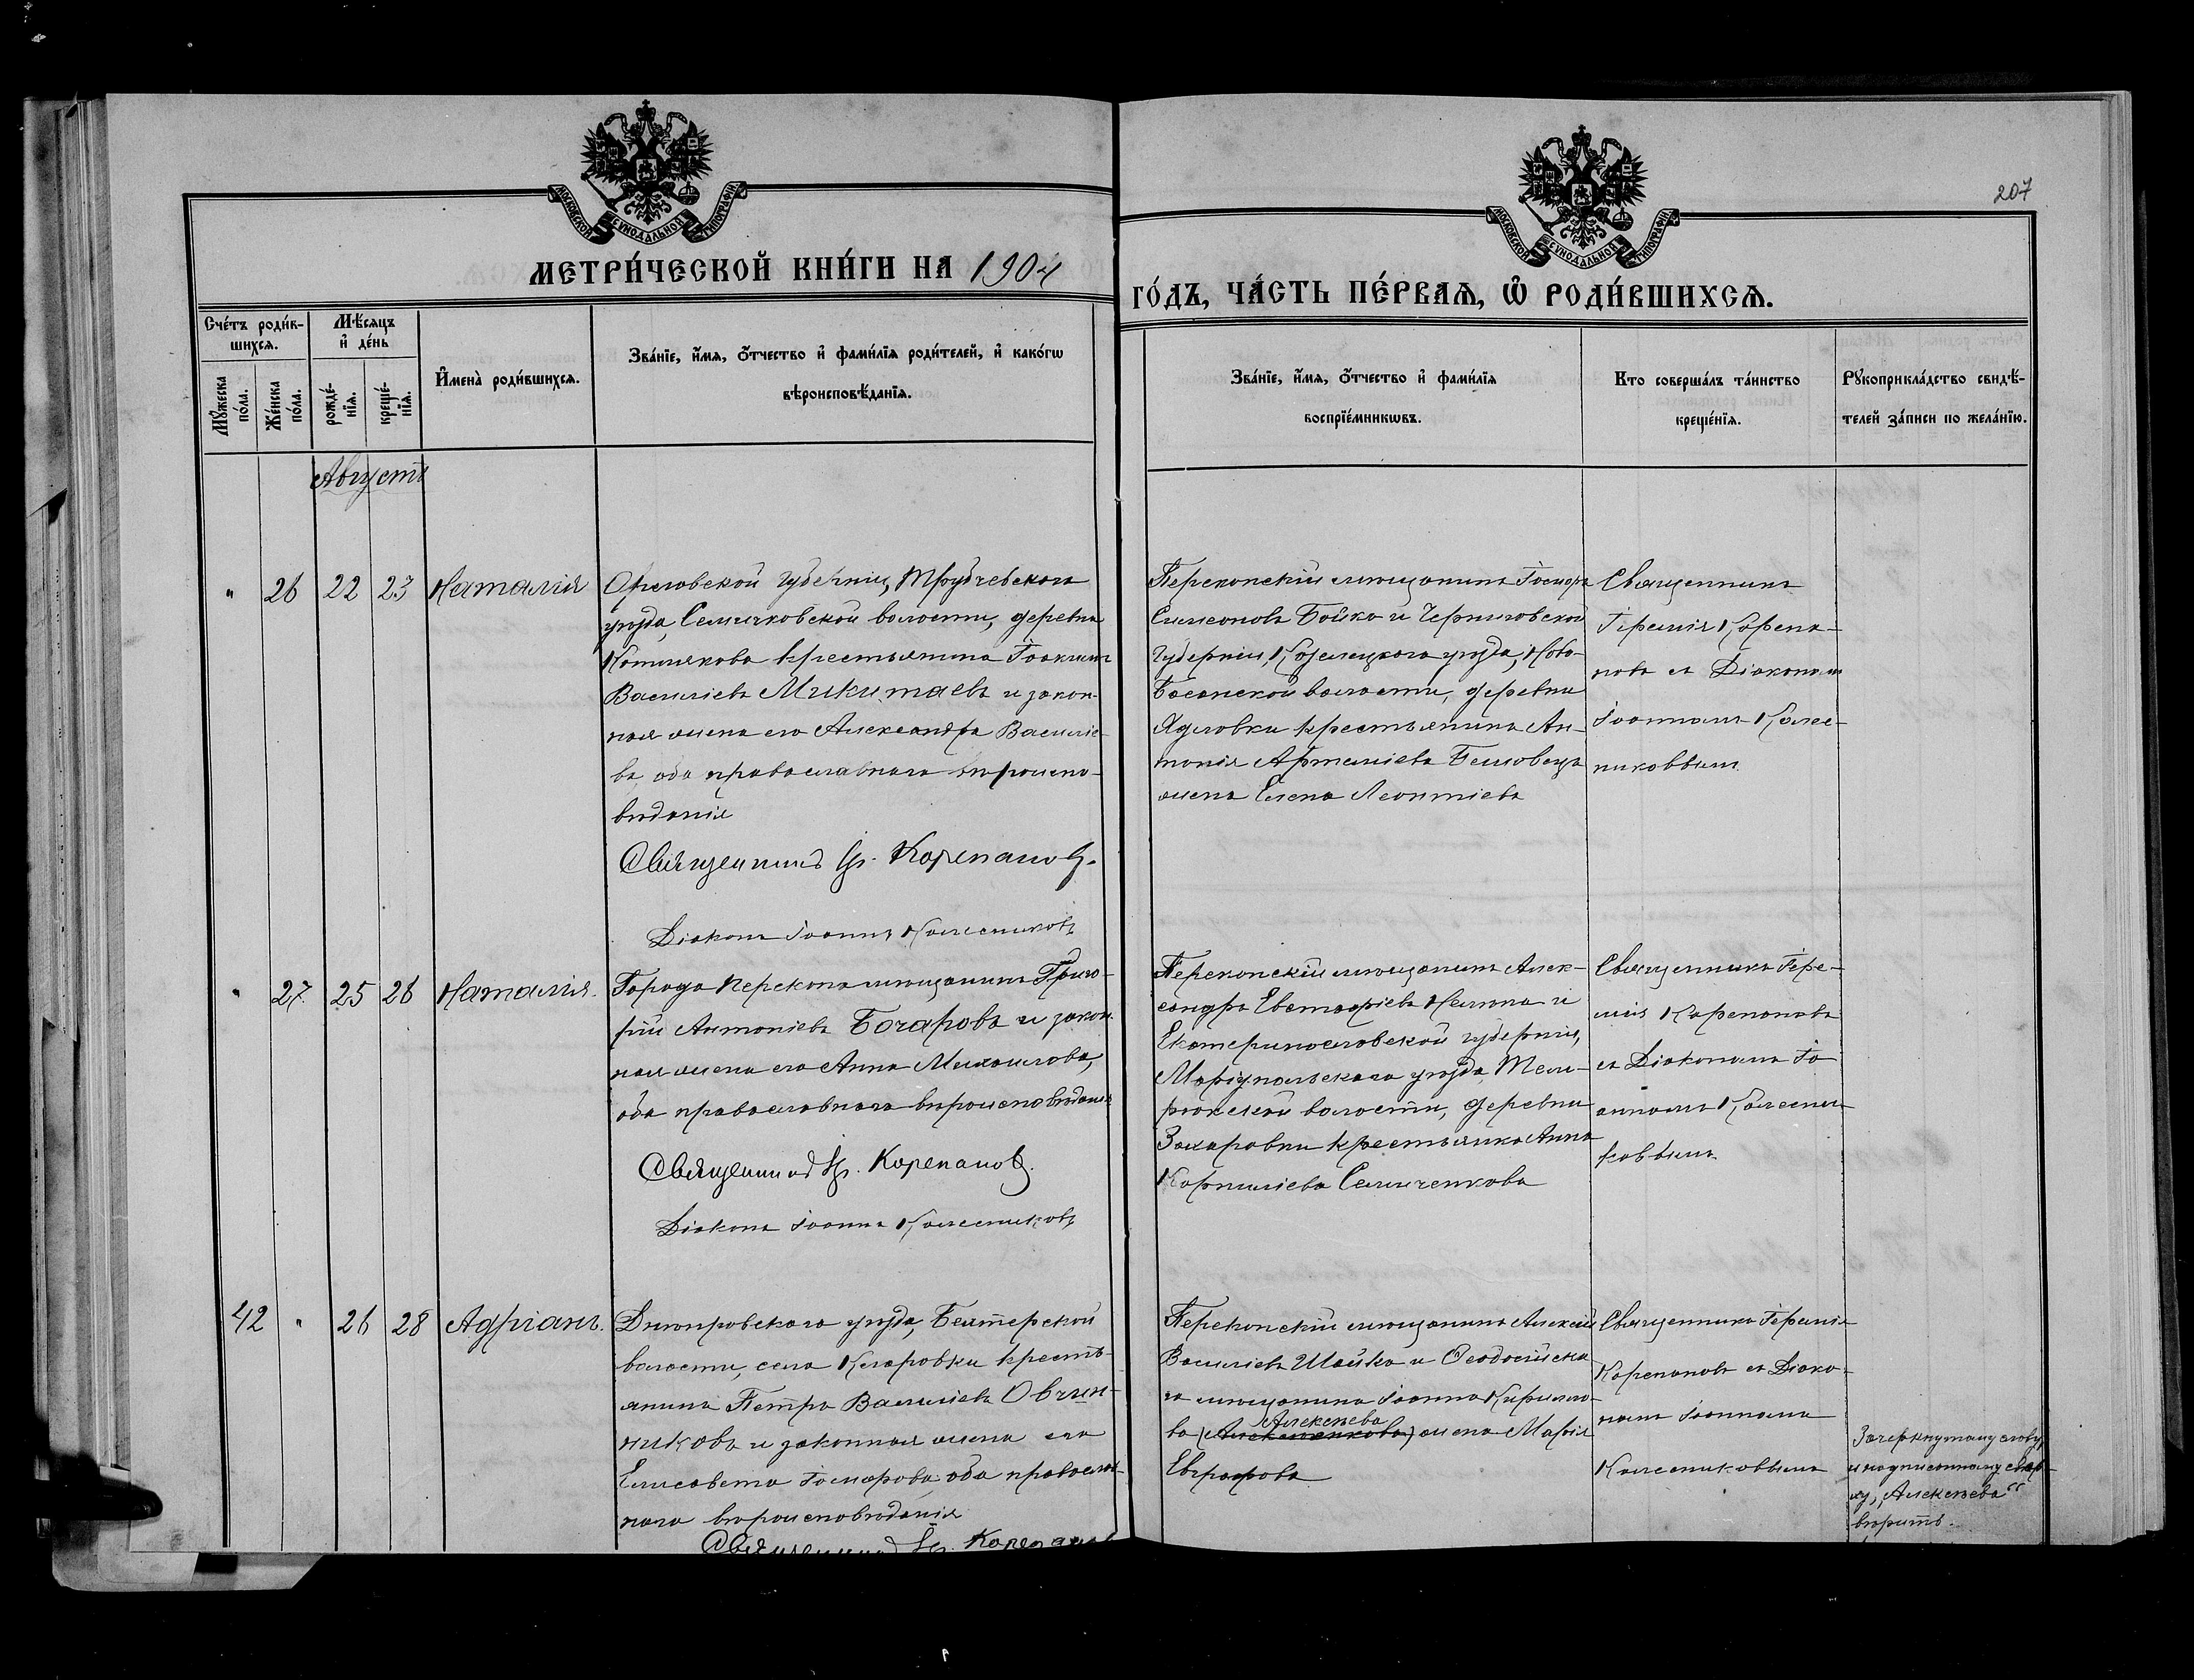 207
МОСКОВСКОЙ СѴНОДАЛЬНОЙ ТИПОГРАФІИ
МОСКОВСКОЙ СѴНОДАЛЬНОЙ ТИПОГРАФІИ
МЕТРИ́ЧЕСКОЙ КНИ́ГИ НА 1904
ГО́ДЪ, ЧА́СТЬ ПЕ́РВАѦ, Ѽ РОДИ́ВШИХСѦ.
Сче́тъ роди́в-
шихсѧ.
Мꙋ́жеска по́ла.
Же́нска по́ла.
Мѣ́сѧцъ
и҆ де́нь
рожде́-
нїѧ.
креще́-
нїѧ.
И҆мена̀ роди́вшихсѧ.
Зва́нїе, и҆́мѧ, ѻ҆́тчество и҆ фами́лїѧ роди́телей, и҆ како́гѡ
вѣроисповѣ́данїѧ.
Зва́нїе, и҆́мѧ, ѻ҆́тчество и҆ фами́лїѧ
воспрїе́мникѡвъ.
Кто соверша́лъ та́инство
креще́нїѧ.
Рꙋкоприкла́дство свидѣ́-
телей за́писи по жела́нїю.
Августъ
" 26 22 23 Наталія
Орловской губерніи, Трубчевскаго
уѣзда, Семячковской волости, деревни
Котлякова крестьянинъ Іоакимъ
Василіевъ Микитаевъ и закон-
ная жена его Александра Василіе-
ва, оба православнаго вѣроиспо-
вѣданія
Священникъ Іер. Корепановъ.
Діаконъ Іоаннъ Колесниковъ
Перекопскій мѣщанинъ Іосифъ
Симеоновъ Бойко и Черниговской
губерніи, Козелецкаго уѣзда, Ново-
Басанской волости, деревни
Ядловки крестьянина Ан-
тонія Артеміева
жена Елена Леонтіева
Священникъ
Іеремія Корепа-
новъ съ Діакономъ
Іоанномъ Колес-
никовымъ
" 27. 25 26 Наталія.
Города Перекопа мѣщанинъ Григо-
рій Антоніевъ Бочаровъ и закон-
ная жена его Анна Михаилова,
оба православнаго вѣроисповѣданія
Священникъ Іер. Корепановъ.
Діаконъ Іоаннъ Колесниковъ
Перекопскій мѣщанинъ Алек-
сандръ Евстафіевъ и
Екатеринославской губерніи,
Маріупольскаго уѣзда,
волости, деревни
Захаровки крестьянка Анна
Корниліева Семиченкова
Священникъ Іере-
мія Корепановъ
съ Діакономъ Іо-
анномъ Колесни-
ковымъ
42 " 26 28 Адріанъ.
Днѣпровскаго уѣзда, Бехтерской
волости, села Кларовки кресть-
янинъ Петръ Василіевъ Овчин-
никовъ и законная жена его
Елисавета Іосифова оба православ-
наго вѣроисповѣданія
Священникъ Іер. Корепановъ
Перекопскій мѣщанинъ Алексій
Василіевъ Шайко и Ѳеодосійска-
го мѣщанина Іоанна Кирилло-
Алексѣева
ва жена Марія
Евграфова
Священникъ Іеремія
Корепановъ съ Діако-
номъ Іоанномъ
Колесниковымъ
Зачеркнутому слову
и надписанному сверху
„Алексѣева“
вѣрить.